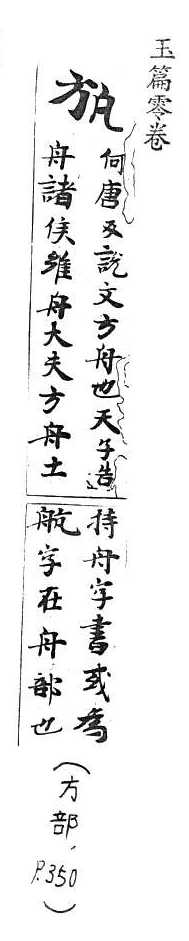 玉篇零卷
斻
何唐反說文方舟也天子告
舟諸侯維舟大夫方舟土
持舟字書或為
航字在舟部也
(方部, P.350)